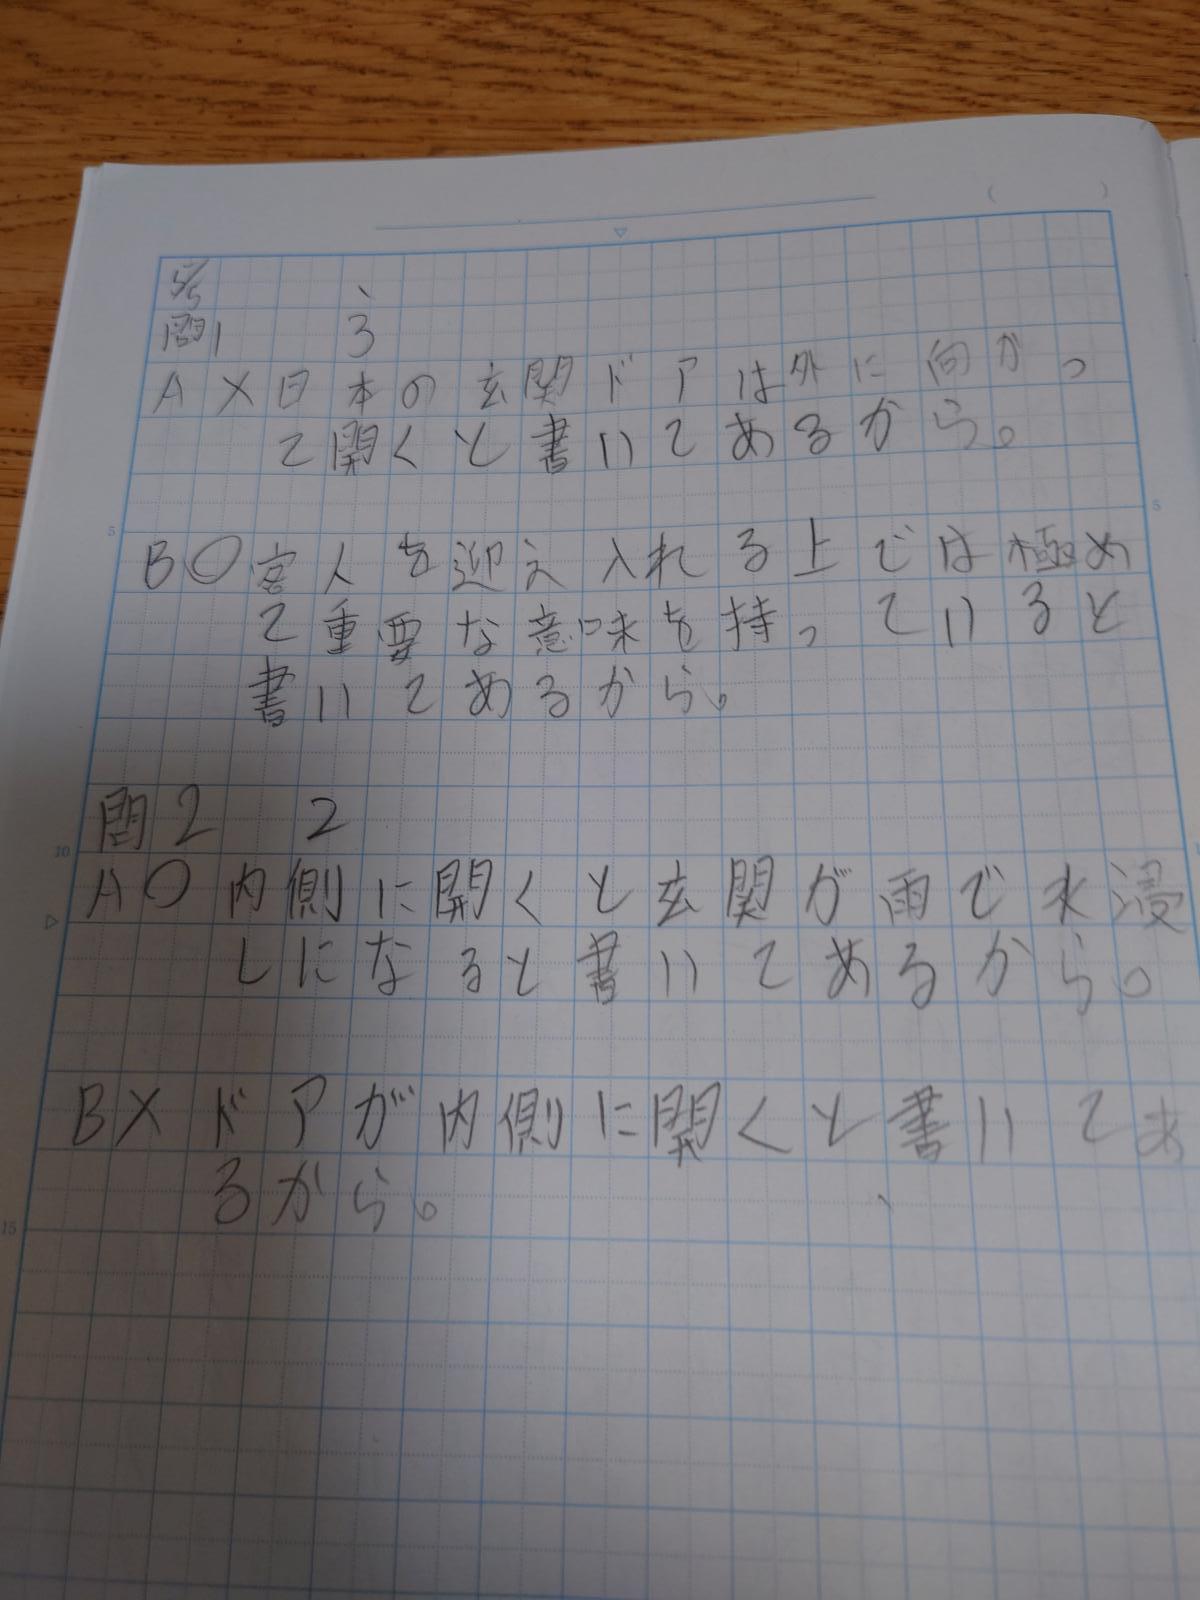 5/5
問1 3
A×日本の玄関ドアは外に向かっ
て開くと書いてあるから。
B○客人を迎え入れる上では極め
て重要な意味を持っていると
書いてあるから。
問2 2
A○内側に開くと玄関が雨で水浸
しになると書いてあるから。
B×ドアが内側に開くと書いてあ
るから。
5
5
10
15